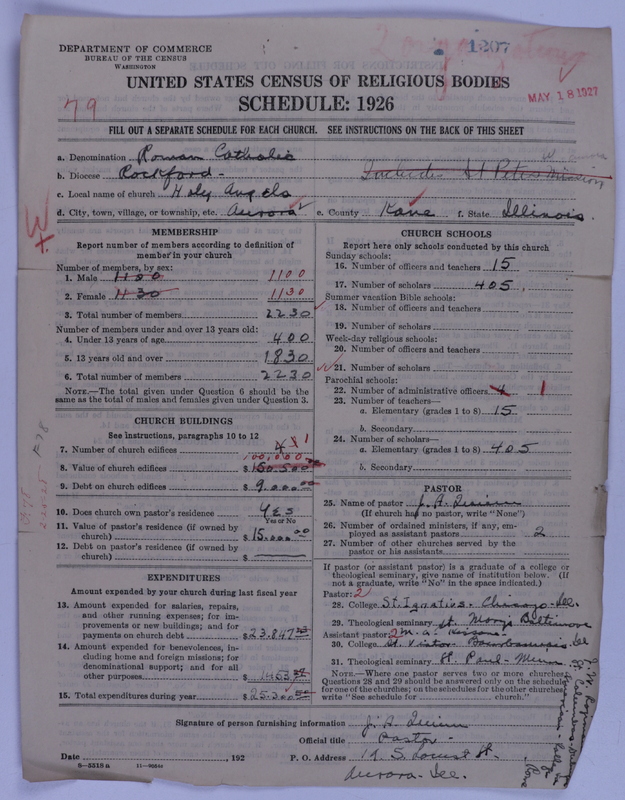 1207
DEPARTMENT OF COMMERCE
BUREAU OF THE CENSUS
WASHINGTON
UNITED STATES CENSUS OF RELIGIOUS BODIES
SCHEDULE: 1926
MAY 18 1927
79
FILL OUT A SEPARATE SCHEDULE FOR EACH CHURCH. SEE INSTRUCTIONS ON THE BACK OF THIS SHEET
a. Denomination Roman Catholic
b. Diocese Rockford - Includes St Peters Mission
c. Local name of church Holy Angels
d. City, town, village, or township, etc. Aurora e. County Kane f. State Illinois.
MEMBERSHIP
Report number of members according to definition of
member in your church
Number of members, by sex:
1. Male 1100 1100
2. Female 1130 1130
3. Total number of members 2230
Number of members under and over 13 years old:
4. Under 13 years of age 400
5. 13 years old and over 1830
6. Total number of members 2230
NOTE.—The total given under Question 6 should be the
same as the total of males and females given under Question 3.
CHURCH BUILDINGS
See instructions, paragraphs 10 to 12
7. Number of church edifices 1
100,000
8. Value of church edifices $
9. Debt on church edifices $ 9,000.00
10. Does church own pastor's residence Yes
Yes or No
11. Value of pastor's residence (if owned by
church) $ 15,000.00
12. Debt on pastor's residence (if owned by
church) $
EXPENDITURES
Amount expended by your church during last fiscal year
13. Amount expended for salaries, repairs,
and other running expenses; for im-
provements or new buildings; and for
payments on church debt $ 23,847
14. Amount expended for benevolences, in-
cluding home and foreign missions; for
denominational support; and for all
other purposes $ 1453
15. Total expenditures during year $ 25,300
CHURCH SCHOOLS
Report here only schools conducted by this church
Sunday schools:
16. Number of officers and teachers 15
17. Number of scholars 405
Summer vacation Bible schools:
18. Number of officers and teachers
19. Number of scholars
Week-day religious schools:
20. Number of officers and teachers
21. Number of scholars
Parochial schools:
22. Number of administrative officers 1
23. Number of teachers—
a. Elementary (grades 1 to 8) 15
b. Secondary
24. Number of scholars—
a. Elementary (grades 1 to 8) 405
b. Secondary
PASTOR
25. Name of pastor J. A. Quinn
(If church has no pastor, write "None")
26. Number of ordained ministers, if any, em-
ployed as assistant pastors 2
27. Number of other churches served by the
pastor or his assistants
If pastor (or assistant pastor) is a graduate of a college or
theological seminary, give name of institution below. (If
not a graduate, write "No" in the space indicated.)
Pastor: 2
28. College St. Ignatius - Chicago - Ill.
29. Theological seminary St. Marys Baltimore
Assistant pastor: 2 M. A.
30. College St. Viator Bourbonnais - Ill
31. Theological seminary St. Paul - Minn
NOTE.—Where one pastor serves two or more churches,
Questions 28 and 29 should be answered only on the schedule
for one of the churches; on the schedules for the other churches
write "See schedule for church."
Signature of person furnishing information J. A. Quinn
Official title Pastor -
Date , 192 P. O. Address 19 S. Locust St.
Aurora - Ill.
8—5518 a